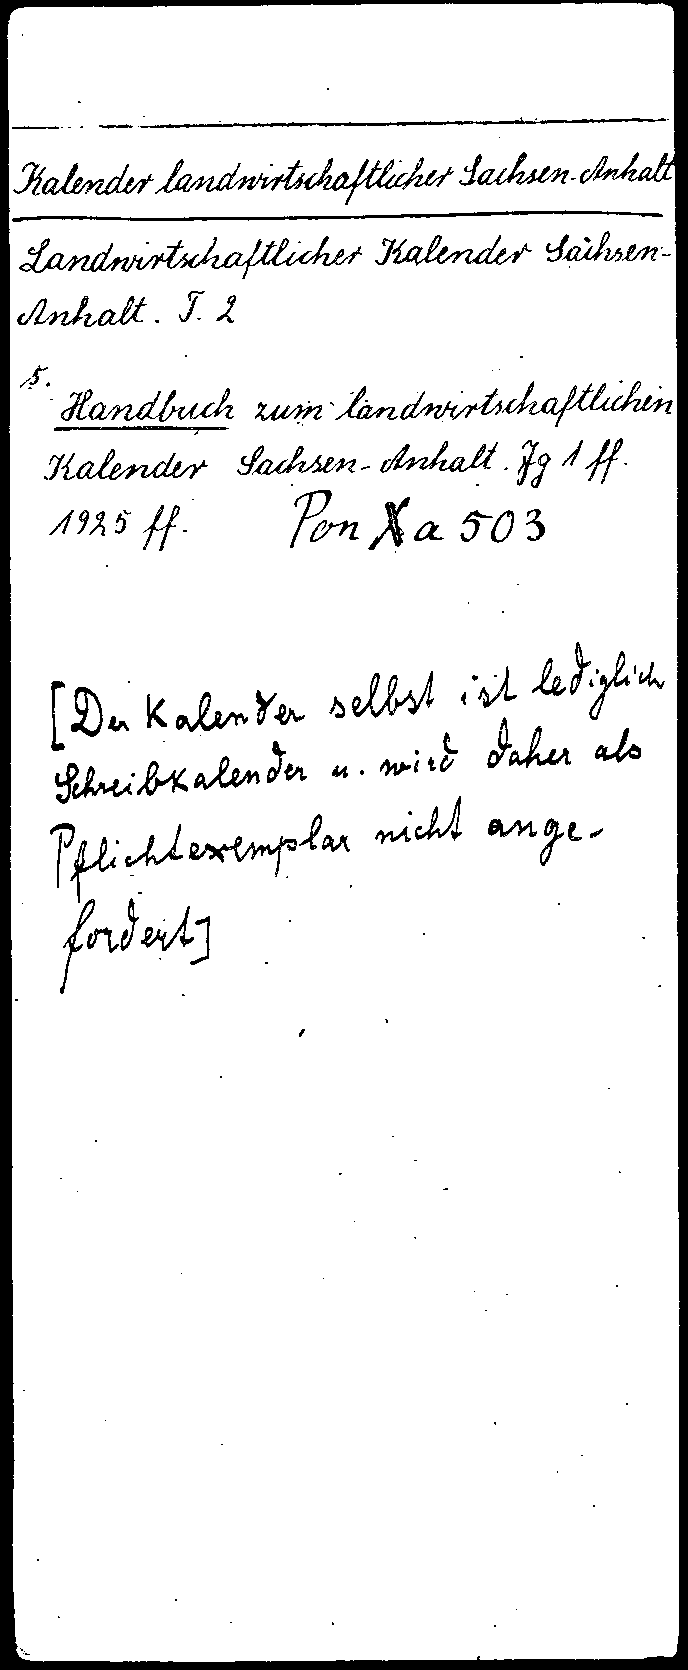 Kalender landwirtschaftlicher Sachsen-Anhalt
Landwirtschaftlicher Kalender Sachsen-
Anhalt. T. 2
s.
Handbuch zum landwirtschaftlichen
Kalender Sachsen-Anhalt. Jg 1 ff.
1925 ff. Pon Xa 503
[Der Kalender selbst ist lediglich
Schreibkalender u. wird daher als
Pflichtexemplar nicht ange-
fordert]